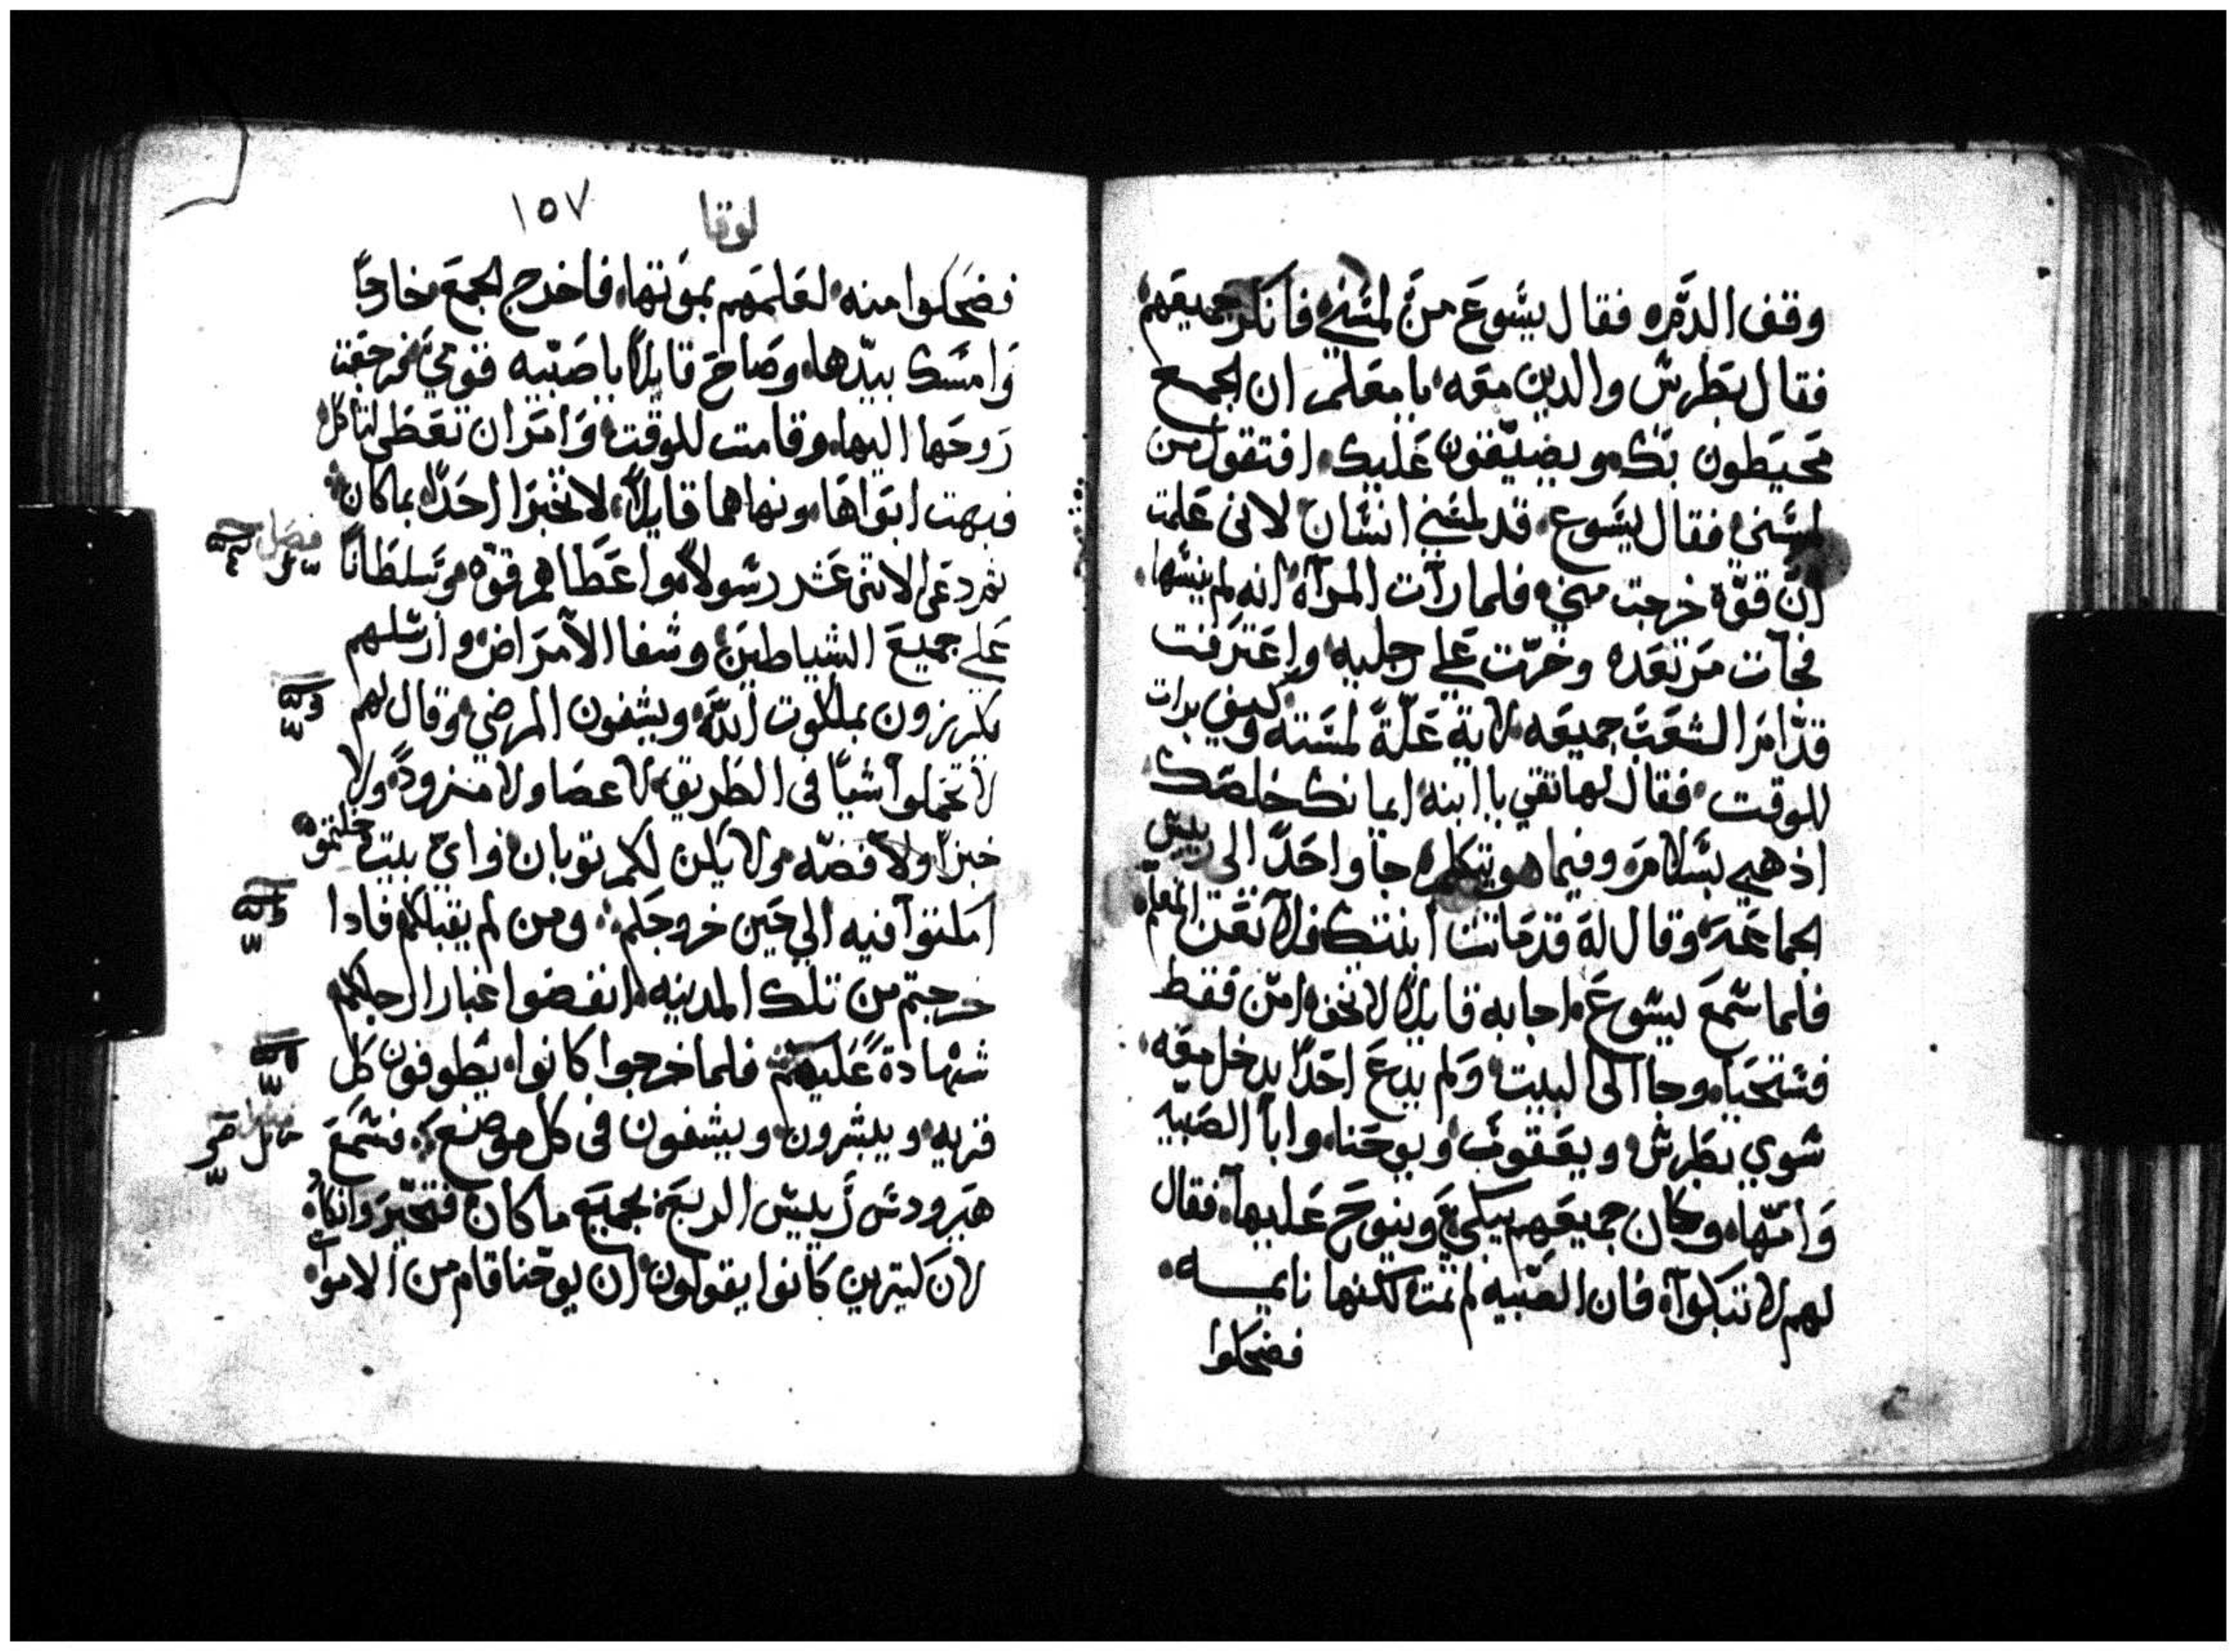 وقف الدم فقال يسوع من لمسني فانكر جميعهم
فقال بطرس والدين معه يا معلم ان الجمع
محيطون بك ويضيقون عليك افتقول من
لمسني فقال يسوع قد لمسني انسان لاني علمت
ان قوة خرجت مني فلما رات المراة انه لم ينسها
فجات مرتعده وخرت علي رجليه واعترفت
قدامر الشعب جميعه لاية علة لمسته وكيف برات
للوقت فقال لها ثقي يا ابنة ايمانك خلصك
اذهبي بسلام وفيما هو يتكلم جا واحد الى ريس
الجماعة وقال له قد ماتت ابنتك فلا تعن المعلم
فلما سمع يسوع اجابه قايلا لا تخف امن فقط
فستحيا وجا الى البيت ولم يدع احدا يدخل معه
سوي بطرس ويعقوب ويوحنا وابا الصبيه
وامها وكان جميعهم يبكي وينوح عليها فقال
لهم لا تبكوا فان الصبيه لم تمت لكنها نايمه
فضحكوا
لوقا ١٥٧
فضحكوا منه لعلمهم بموتها فاخرج الجمع خارجا
وامسك بيدها وصاح قايلا يا صبيه قومي فرجعت
روحها اليها وقامت للوقت وامر ان تعطى لتاكل
فبهت ابواها ونهاهما قايلا لا تخبرا احدا بما كان
ثم دعى الاثنى عشر رسولا واعطاهم قوة وسلطانا
فصل
علي جميع الشياطين وشفا الامراض وارسلهم
يكرزون بملكوت الله ويشفون المرضي وقال لهم
لا تحملوا شيا في الطريق لا عصا ولا مزود ولا
خبزا ولا فضه ولا يكن لكم ثوبان واي بيت دخلتموه
امكثوا فيه الي حين خروجكم ومن لم يقبلكم فادا
خرجتم من تلك المدينه انفضوا غبار ارجلكم
شهادة عليهم فلما خرجوا كانوا يطوفون كل
قريه ويبشرون ويشفون في كل موضع فسمع
هيرودس رييس الربع بجميع ما كان فتحير وانكاه
لان كثيرين كانوا يقولون ان يوحنا قام من الاموات